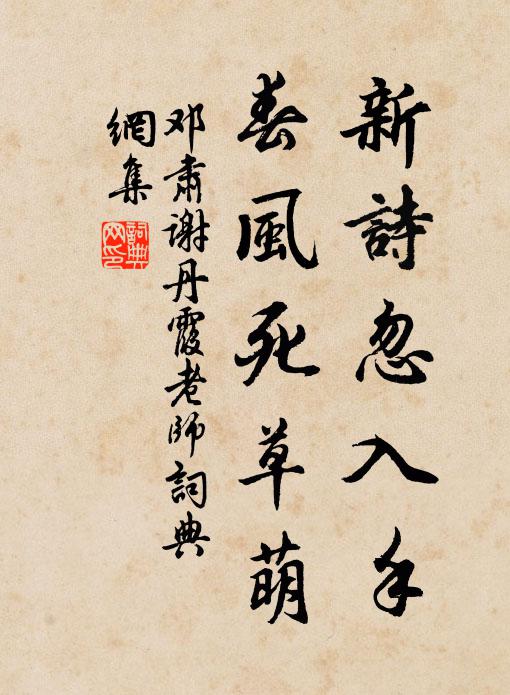 新詩忽入手
春風死草萌
邓肅谢丹霞老师詞典
網集
詞典
网印